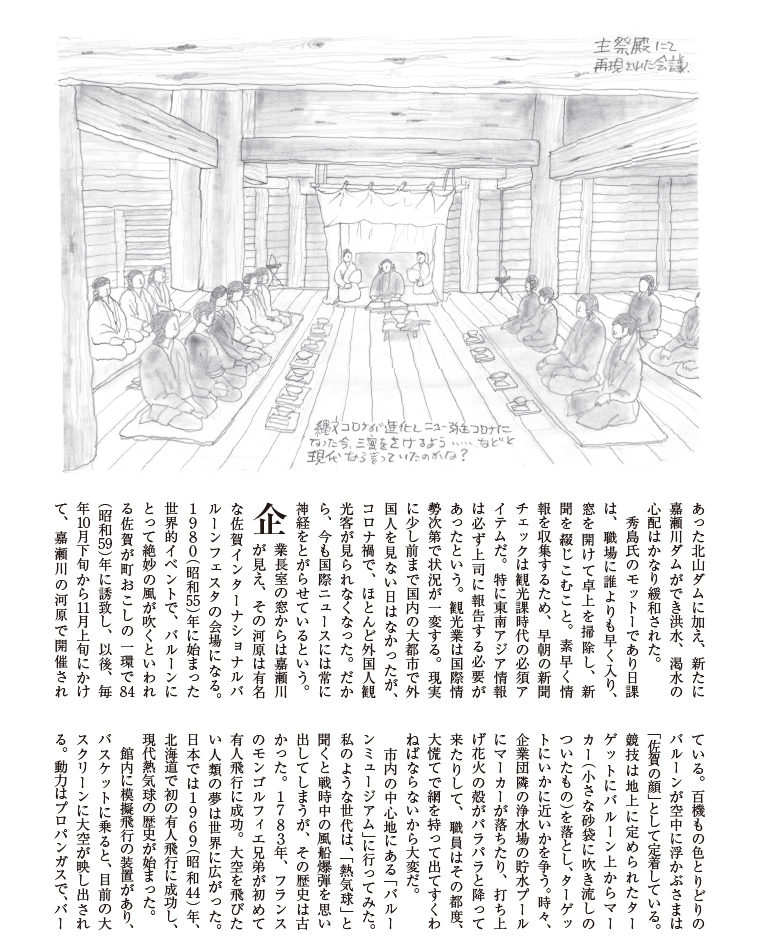 主祭殿にて
再現された会議.
縄文コロナが進化しニュー弥生コロナに
なった今、三蜜をさけるよう……などと
現代なら言っていたのかな?
あった北山ダムに加え、新たに
嘉瀬川ダムができ洪水、渇水の
心配はかなり緩和された。
秀島氏のモットーであり日課
は、職場に誰よりも早く入り、
窓を開けて卓上を掃除し、新
聞を綴じこむこと。素早く情
報を収集するため、早朝の新聞
チェックは観光課時代の必須ア
イテムだ。特に東南アジア情報
は必ず上司に報告する必要が
あったという。観光業は国際情
勢次第で状況が一変する。現実
に少し前まで国内の大都市で外
国人を見ない日はなかったが、
コロナ禍で、ほとんど外国人観
光客が見られなくなった。だか
ら、今も国際ニュースには常に
神経をとがらせているという。
企業長室の窓からは嘉瀬川
が見え、その河原は有名
な佐賀インターナショナルバ
ルーンフェスタの会場になる。
1980(昭和55)年に始まった
世界的イベントで、バルーンに
とって絶妙の風が吹くといわれ
る佐賀が町おこしの一環で84
(昭和59)年に誘致し、以後、毎
年10月下旬から11月上旬にかけ
て、嘉瀬川の河原で開催され
ている。百機もの色とりどりの
バルーンが空中に浮かぶさまは
「佐賀の顔」として定着している。
競技は地上に定められたター
ゲットにバルーン上からマー
カー(小さな砂袋に吹き流しの
ついたもの)を落とし、ターゲッ
トにいかに近いかを争う。時々、
企業団隣の浄水場の貯水プール
にマーカーが落ちたり、打ち上
げ花火の殻がバラバラと降って
来たりして、職員はその都度、
大慌てで網を持って出てすくわ
ねばならないから大変だ。
市内の中心地にある「バルー
ンミュージアム」に行ってみた。
私のような世代は、「熱気球」と
聞くと戦時中の風船爆弾を思い
出してしまうが、その歴史は古
かった。1783年、フランス
のモンゴルフィエ兄弟が初めて
有人飛行に成功。大空を飛びた
い人類の夢は世界に広がった。
日本では1969(昭和44)年、
北海道で初の有人飛行に成功し、
現代熱気球の歴史が始まった。
館内に模擬飛行の装置があり、
バスケットに乗ると、目前の大
スクリーンに大空が映し出され
る。動力はプロパンガスで、バー